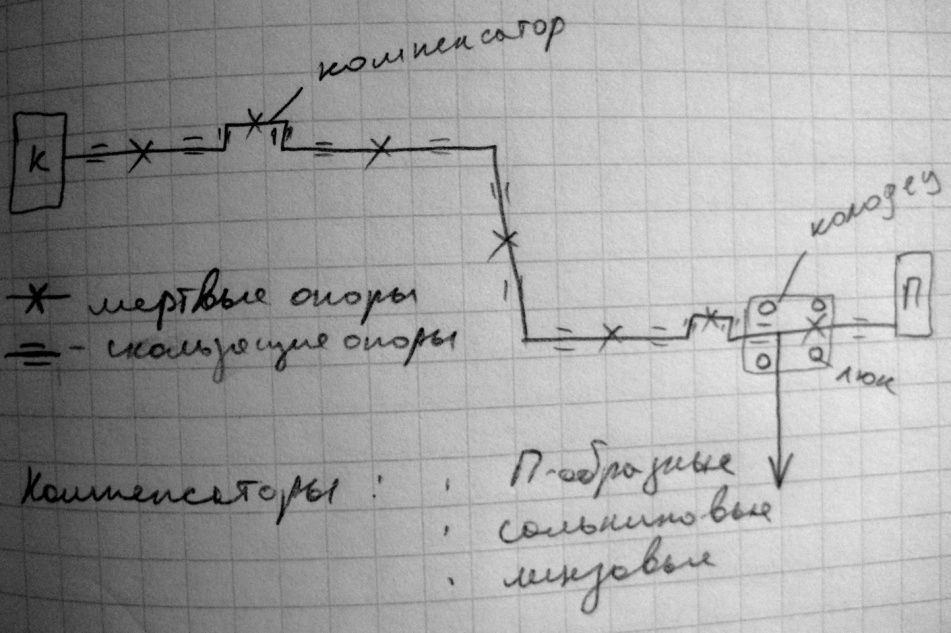 компенсатор
К
колодец
П
мертвые опоры
- скользящие опоры
люк
Компенсаторы :
П-образные
сальниковые
линзовые